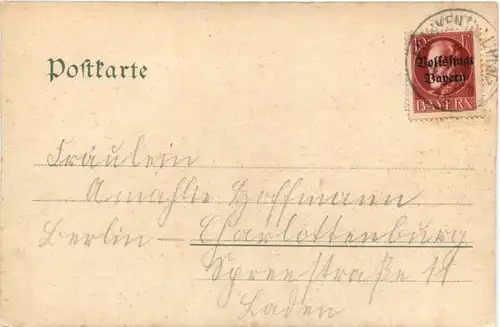 Postkarte
10 PF
Volksstaat
Bayern
BAYERN
Fräulein
Amahlie Hoffmann
Berlin — Charlottenburg
Spreestraße 11
Laden